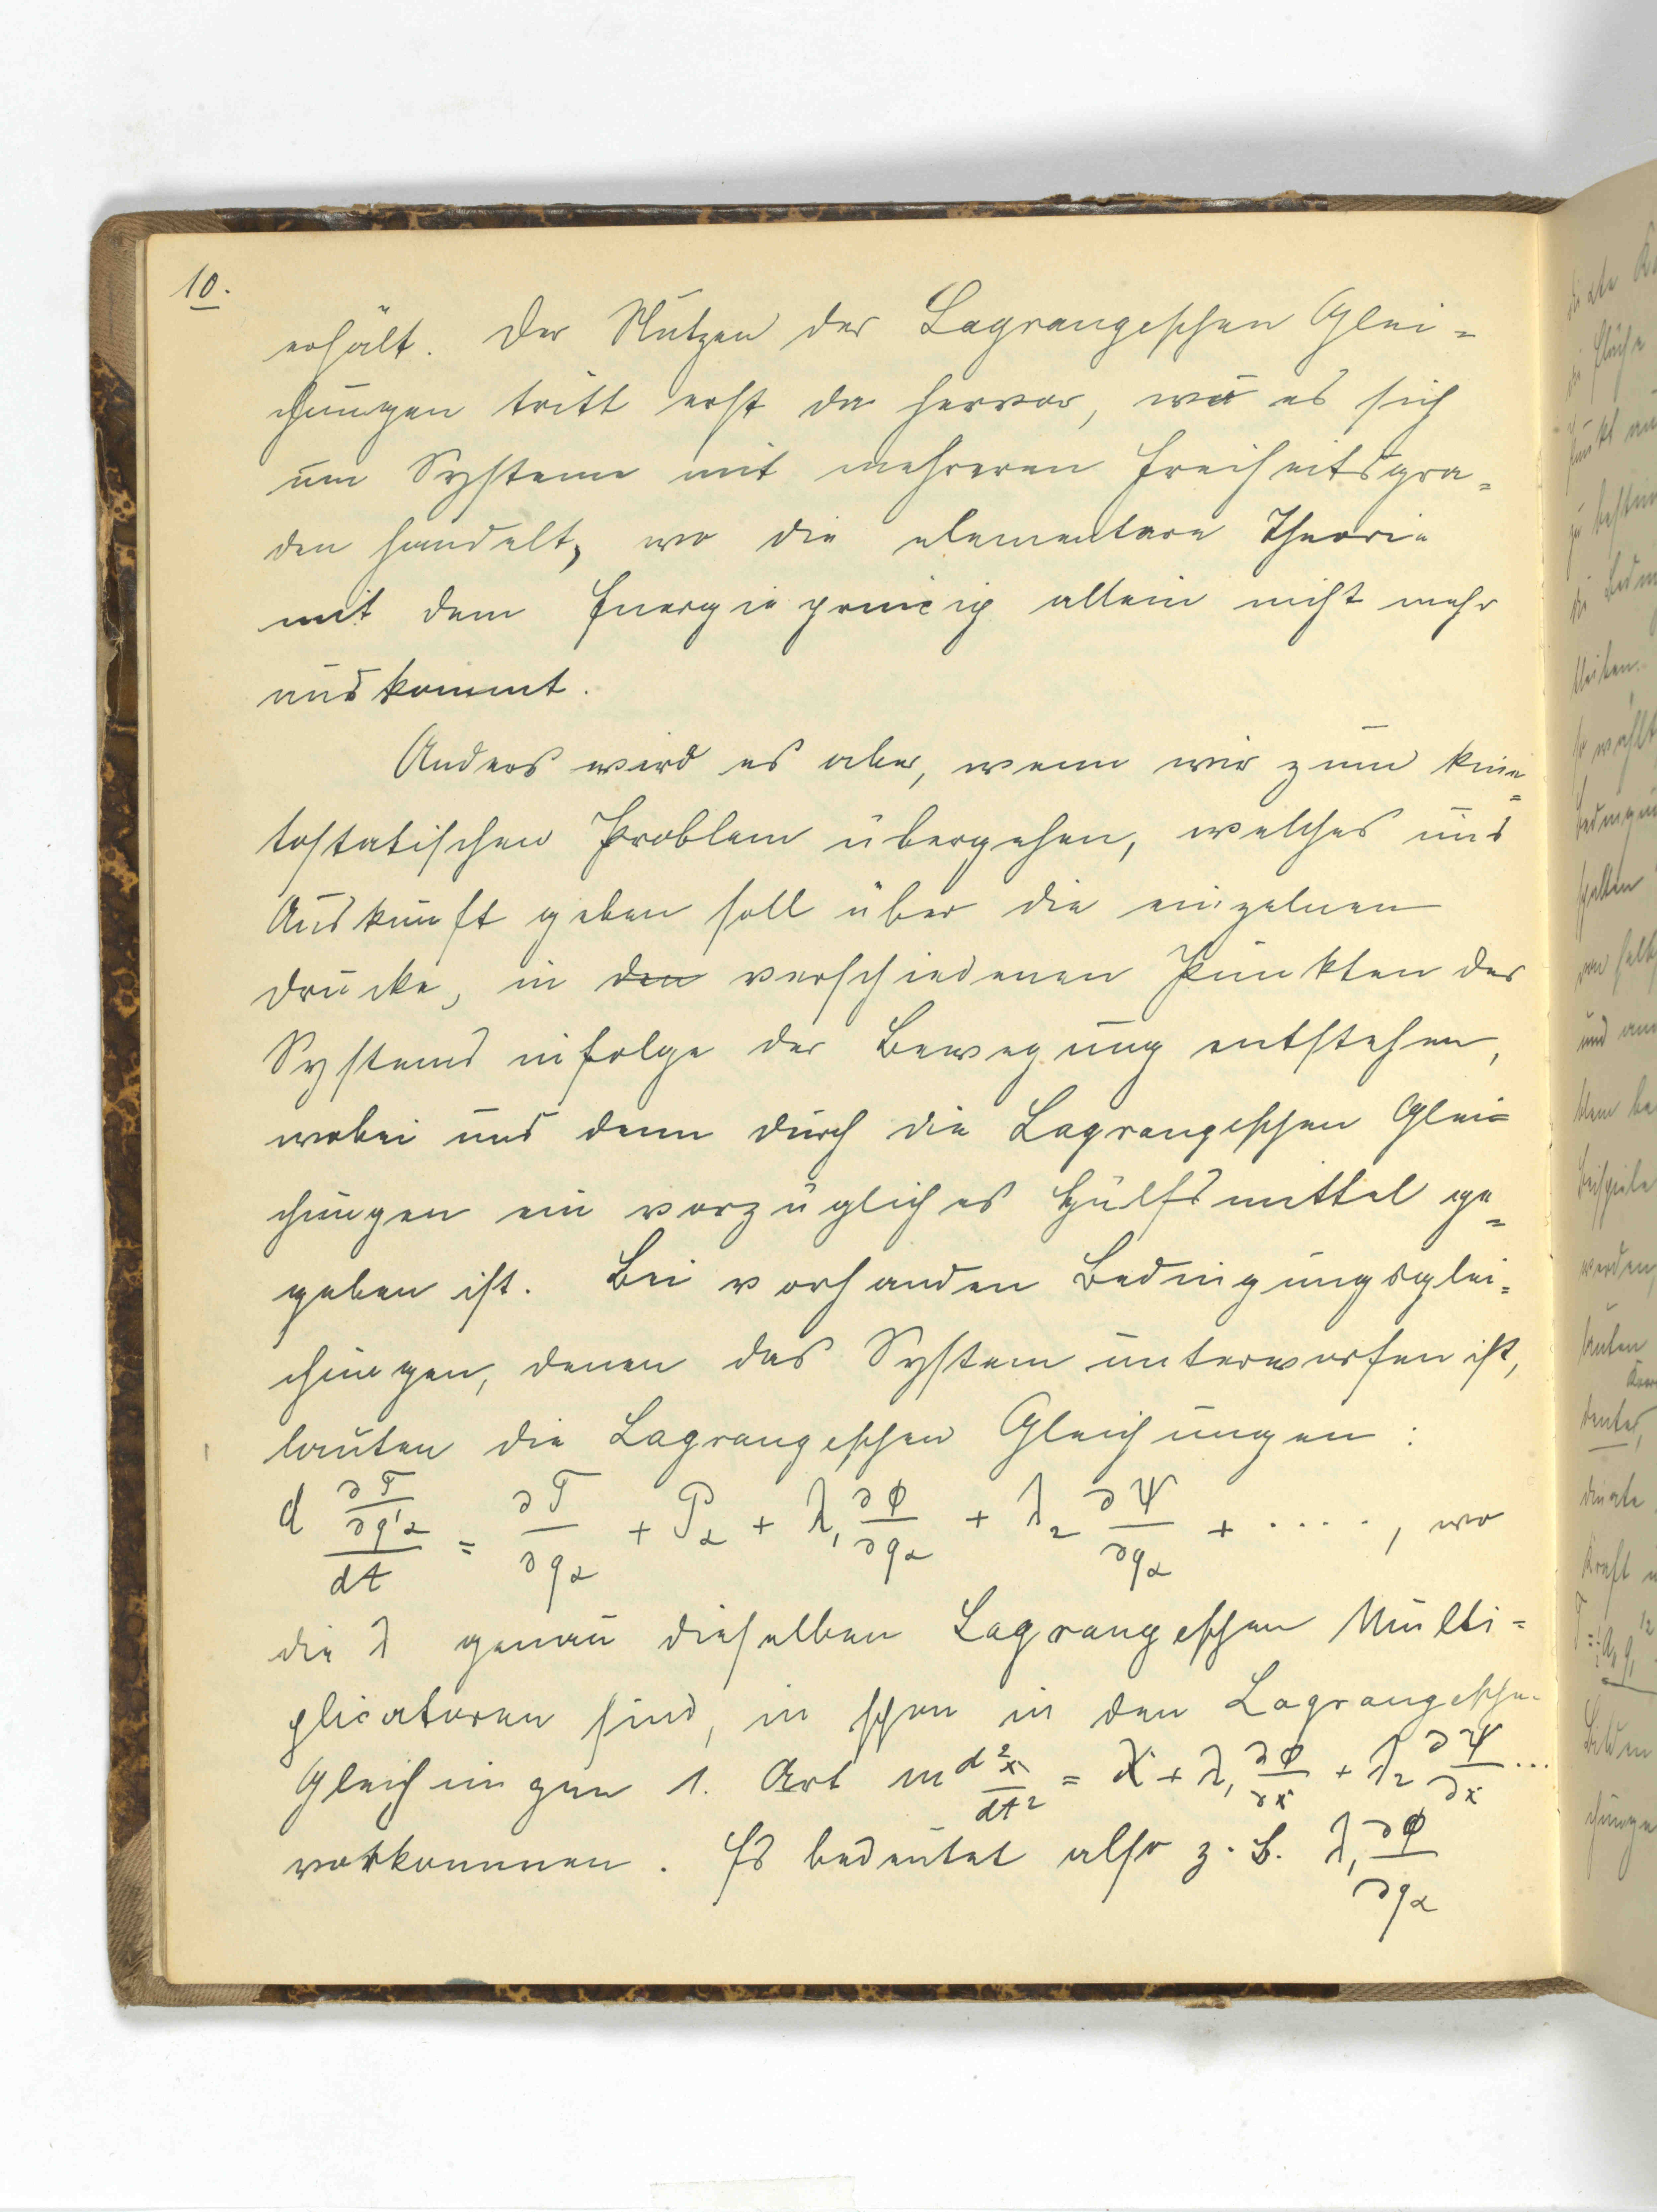 10.
erhält. Der Nutzen der Lagrangeschen Glei=
chungen tritt erst da hervor, wo es sich
um Systeme mit mehreren Freiheitsgra=
den handelt, wo die elementare Theorie
mit dem Energieprincip allein nicht mehr
auskommt.
Anders wird es aber, wenn wir zum kine=
tostatischen Problem übergehen, welches uns
Auskunft geben soll über die einzelnen
Drucke, in den verschiedenen Punkten des
Systems infolge der Bewegung entstehen,
wobei uns denn durch die Lagrangeschen Glei=
chungen ein vorzügliches Hülfsmittel ge=
geben ist. Bei vorhanden Bedingungsglei=
chungen, denen das System unterworfen ist,
lauten die Lagrangeschen Gleichungen:
d ∂T/∂q'α / dt = ∂T/∂qα + Pα + λ₁ ∂ϕ/∂qα + λ₂ ∂ψ/∂qα + ....., wo
die λ genau dieselben Lagrangeschen Multi=
plicatoren sind, in schon in den Lagrangeschen
Gleichungen 1. Art m d²x/dt² = X + λ₁ ∂ϕ/∂x + λ₂ ∂ψ/∂x ...
vorkommen. Es bedeutet also z. B. λ₁ ∂ϕ/∂qα